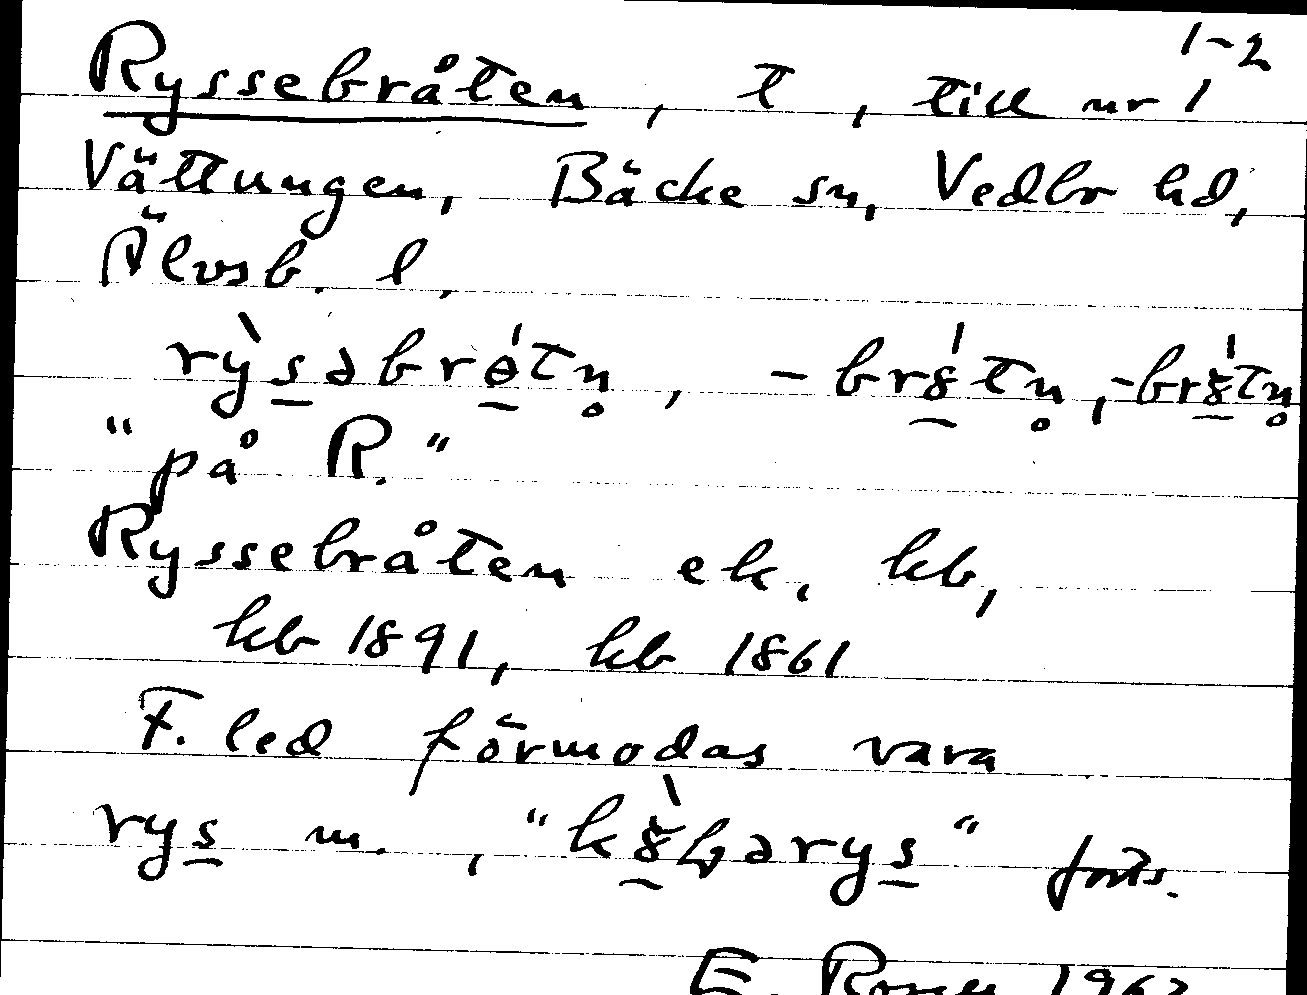 1-2
Ryssebråten, t, till nr 1
Vättungen, Bäcke sn, Vedbo hd,
Älvsb. l.
rỳsəbrɵ́tn̥, -br8́tn̥, -br8́tn̥
"på R."
Ryssebråten ek. kb,
kb 1891, kb 1861
F. led förmodas vara
rys m., "k8̀ɮərys" forts.
E. 196